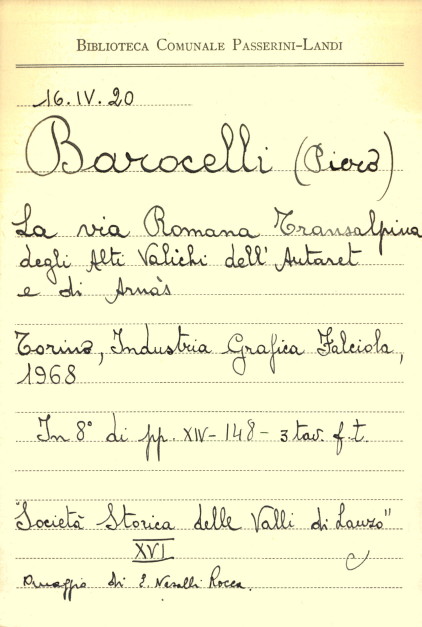 BIBLIOTECA COMUNALE PASSERINI-LANDI
16.IV.20
Barocelli (Piero)
La via Romana Transalpina
degli Alti Valichi dell'Autaret
e di Arnàs
Torino, Industria Grafica Falciola,
1968
In 8° di pp. XIV-148-3 tav. f.t.
"Società Storica delle Valli di Lanzo"
XVI
Omaggio di E. Nasalli Rocca.